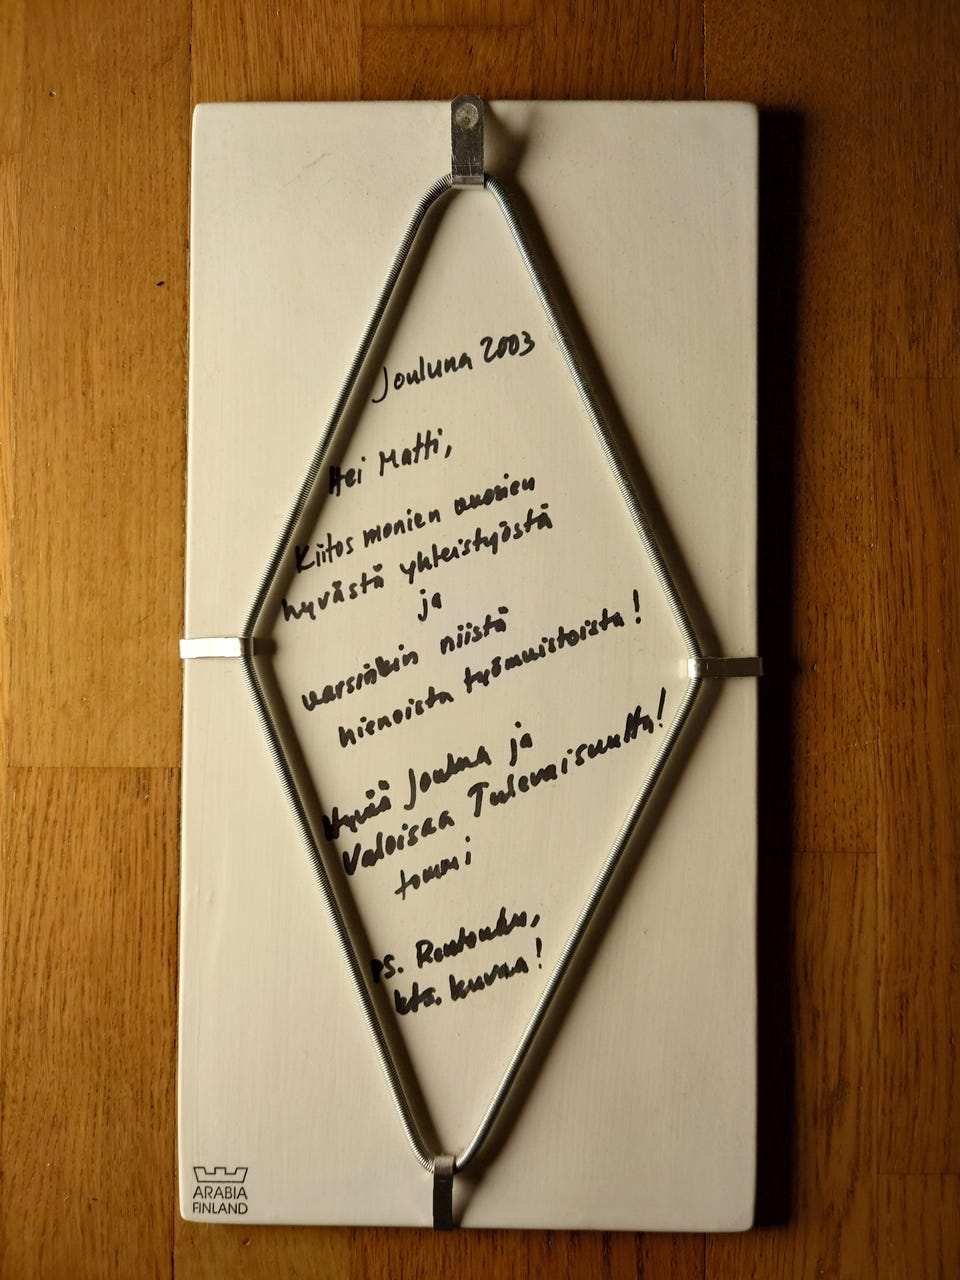 Jouluna 2003
Hei Matti,
Kiitos monien vuosien
hyvästä yhteistyöstä
ja
varsinkin niistä
hienoista työmuistoista!
Hyvää Joulua ja
Valoisaa Tulevaisuutta!
tommi
ps. Rentoudu,
kts. kuvaa!
ARABIA
FINLAND